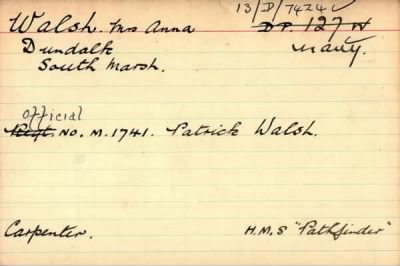 13/D/7424
Walsh. Mrs Anna D.P. 127 W
Dundalk Navy.
South Marsh.
Official
Regt. No. M.1741. Patrick Walsh.
Carpenter. H.M.S "Pathfinder"